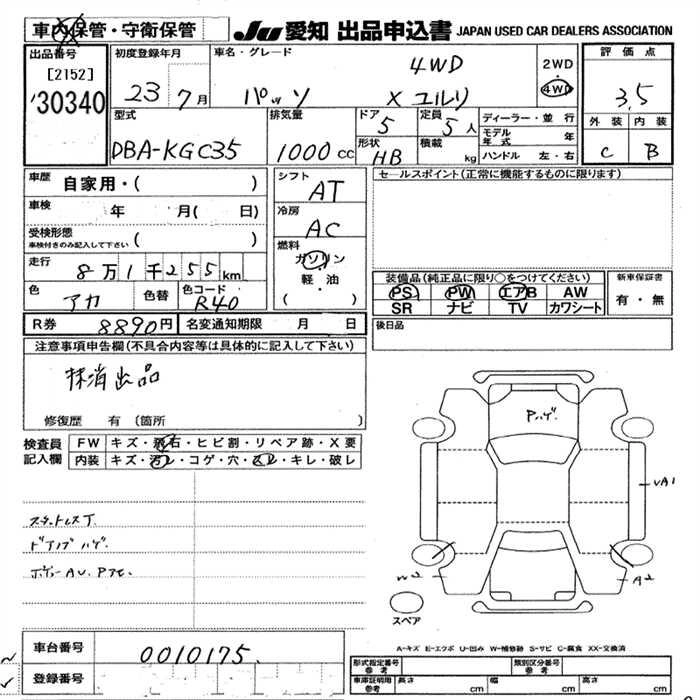 車内保管・守衛保管
Ju 愛知 出品申込書 JAPAN USED CAR DEALERS ASSOCIATION
出品番号
[2152]
30340
初度登録年月
23 7月
車名・グレード
パッソ X ユルリ
4WD
2WD
4WD
評価点
3.5
型式
DBA-KGC35
排気量
1000 cc
ドア
5
形状
HB
定員
5人
積載
kg
ディーラー・並行
モデル年式 年
ハンドル 左・右
外装 内装
C B
車歴 自家用・( )
車検 年 月( 日)
受検形態
車検付きのみ記入して下さい ( )
走行 8万1千255km
色 アカ
色替
色コード
R40
R券 8890円
名変通知期限 月 日
シフト
AT
冷房
AC
燃料
ガソリン
軽・油
( )
セールスポイント(正常に機能するものに限ります)
装備品(純正品に限り○をつけてください)
PS PW エアB AW
SR ナビ TV カワシート
新車保証書
有・無
後日品
注意事項申告欄(不具合内容等は具体的に記入して下さい)
抹消出品
修復歴 有 (箇所 )
検査員
記入欄
FW キズ・飛石・ヒビ割・リペア跡・X要
内装 キズ・汚レ・コゲ・穴・スレ・キレ・破レ
スタットレスT
ボデーAU.Pアセ.
Pハゲ
UA1
W2
A2
スペア
A-キズ E-エクボ U-凹み W-補修跡 S-サビ C-腐食 XX-交換済
車台番号 0010175
登録番号
形式指定番号
参考
類別区分番号
参考
車庫証明用
参考
長さ cm 幅 cm 高さ cm